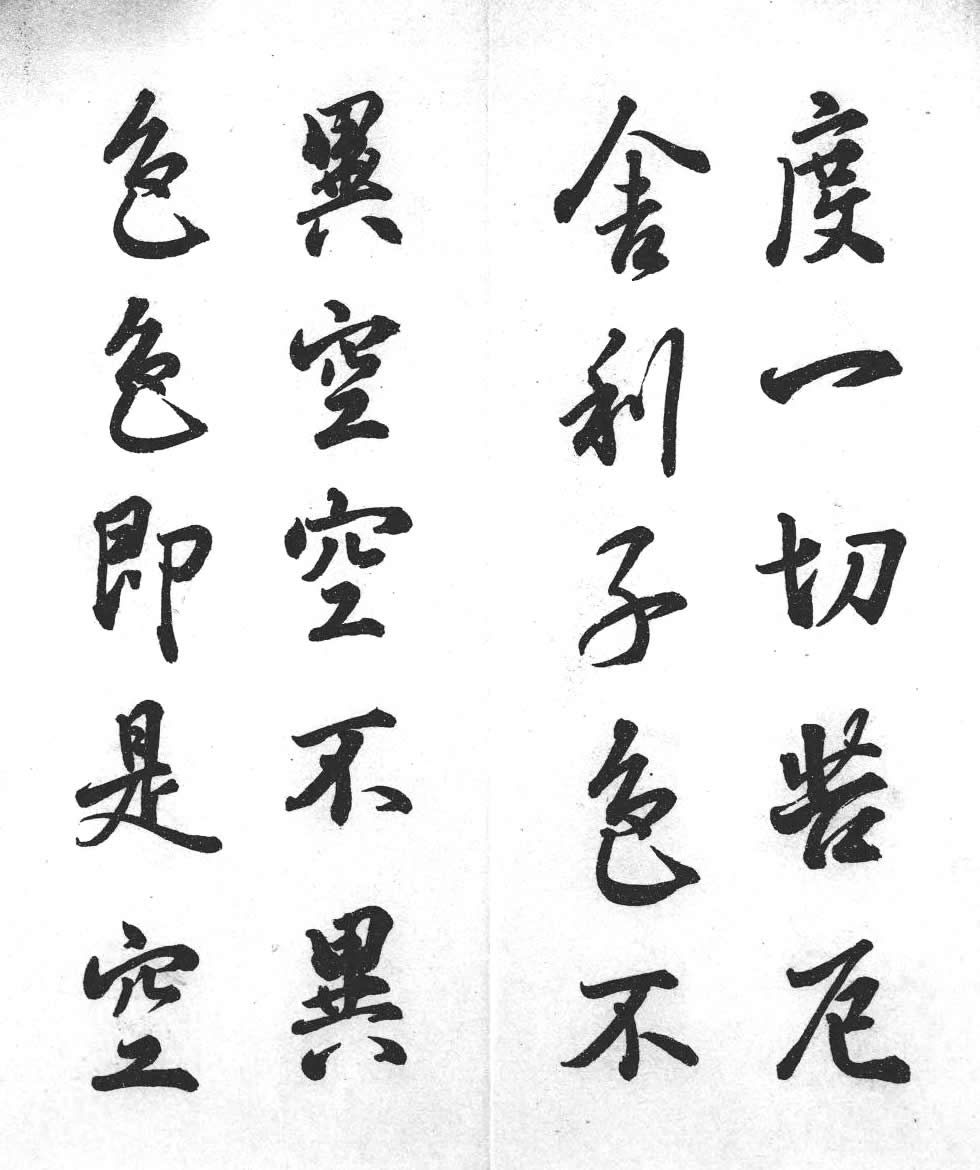 度一切苦厄
舍利子色不
異空空不異
色色即是空